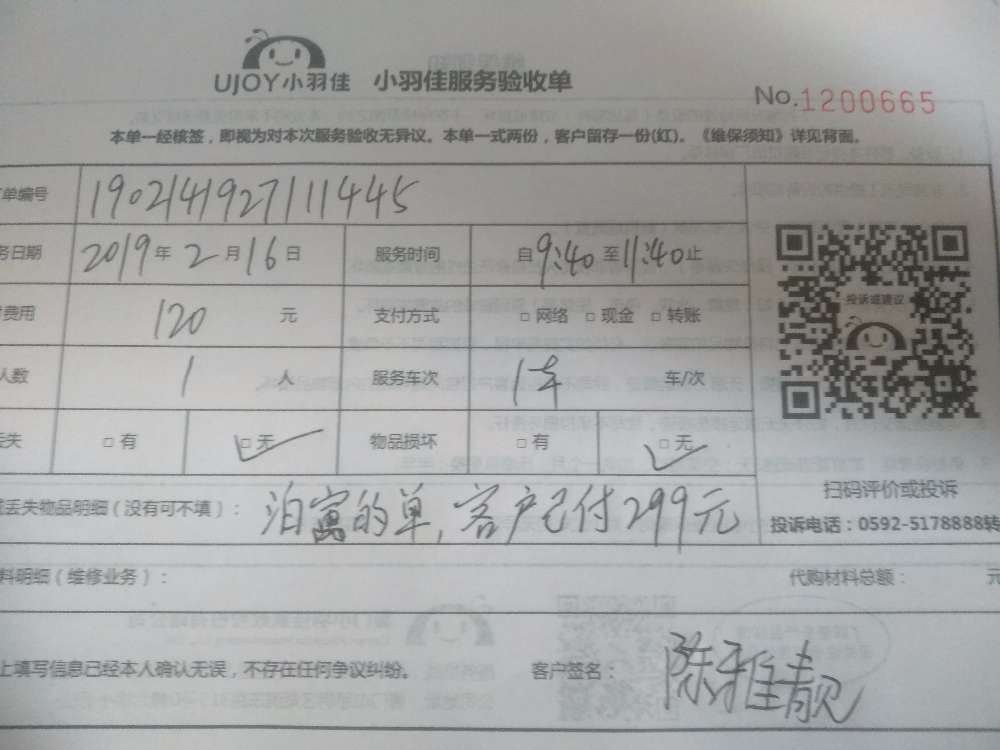 UJOY小羽佳 小羽佳服务验收单
No.1200665
本单一经核签，即视为对本次服务验收无异议。本单一式两份，客户留存一份(红)。《维保须知》详见背面。
单编号 190214192711445
务日期 2019年2月16日 服务时间 自9:40至11:40止
费用 120 元 支付方式 □网络 □现金 □转账
投诉或建议
人数 1 人 服务车次 1车 车/次
丢失 □有 □无 物品损坏 □有 □无
扫码评价或投诉
丢失物品明细（没有可不填）： 泊寓的单，客户已付299元
投诉电话：0592-5178888转
料明细（维修业务）： 代购材料总额： 元
上填写信息已经本人确认无误，不存在任何争议纠纷。 客户签名： 陈雅靓